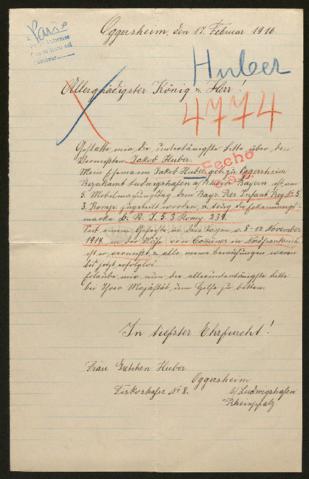 Paris
Oggersheim, den 17. Februar 1916
Huber
Allergnädigster König u. Herr!
4774
Gestatte mir, die untertänigste Bitte über den
Vermissten Jakob Huber.
Mein Ehemann Jakob Huber, geb. zu Oggersheim
Bezirksamt Ludwigshafen a/Rhein Bayern ist am
5. Mobilmachungstag dem Bayr. Res. Infant. Reg. No 5
3. Komp. zugeteilt worden, u. trug die Erkennungs-
marke b. R. I. 5. 3. Komp. 239.
Fecho
Seit einem Gefechte in den Tagen v. 8-12 November
1914 in der Nähe von in Nordfrankreich
ist er vermisst u. alle meine Bemühungen waren
bis jetzt erfolglos.
Erlaube mir nun die alleruntertänigste Bitte
bei Ihrer Majestät, um Hilfe zu bitten.
In tiefster Ehrfurcht!
Frau Huber
Oggersheim
No 8. b/Ludwigshafen
Rheinpfalz